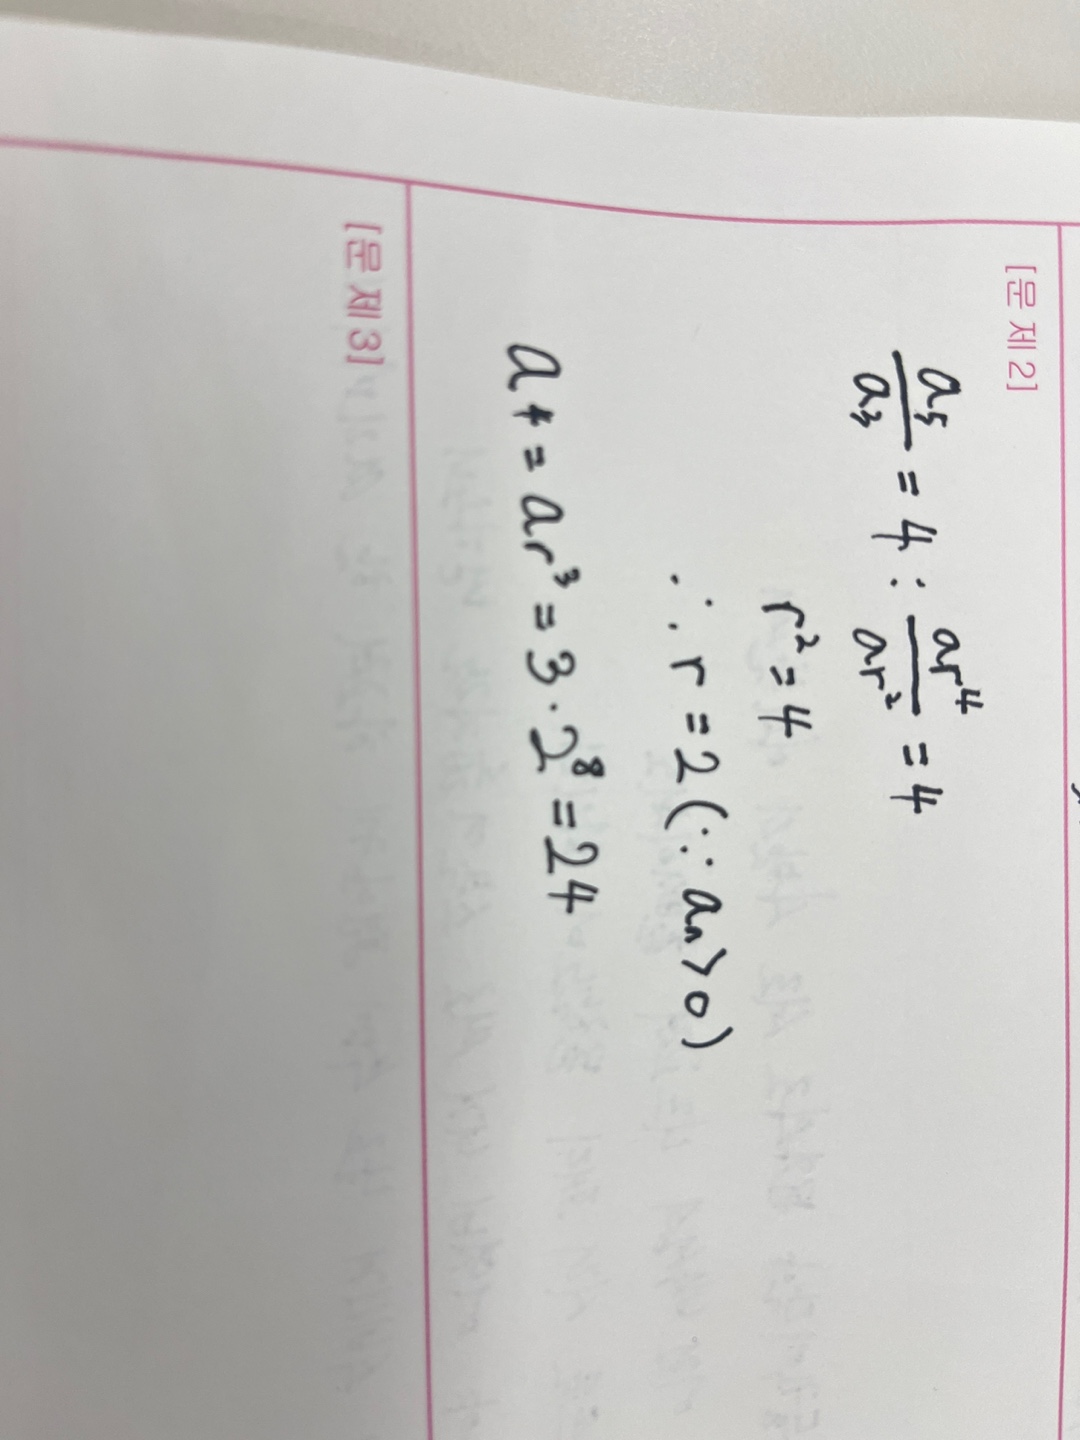 [문제 2]
a₅/a₃ = 4 : ar⁴/ar² = 4
r² = 4
∴ r = 2 (∵ aₙ > 0)
a₄ = ar³ = 3 · 2⁸ = 24
[문제 3]